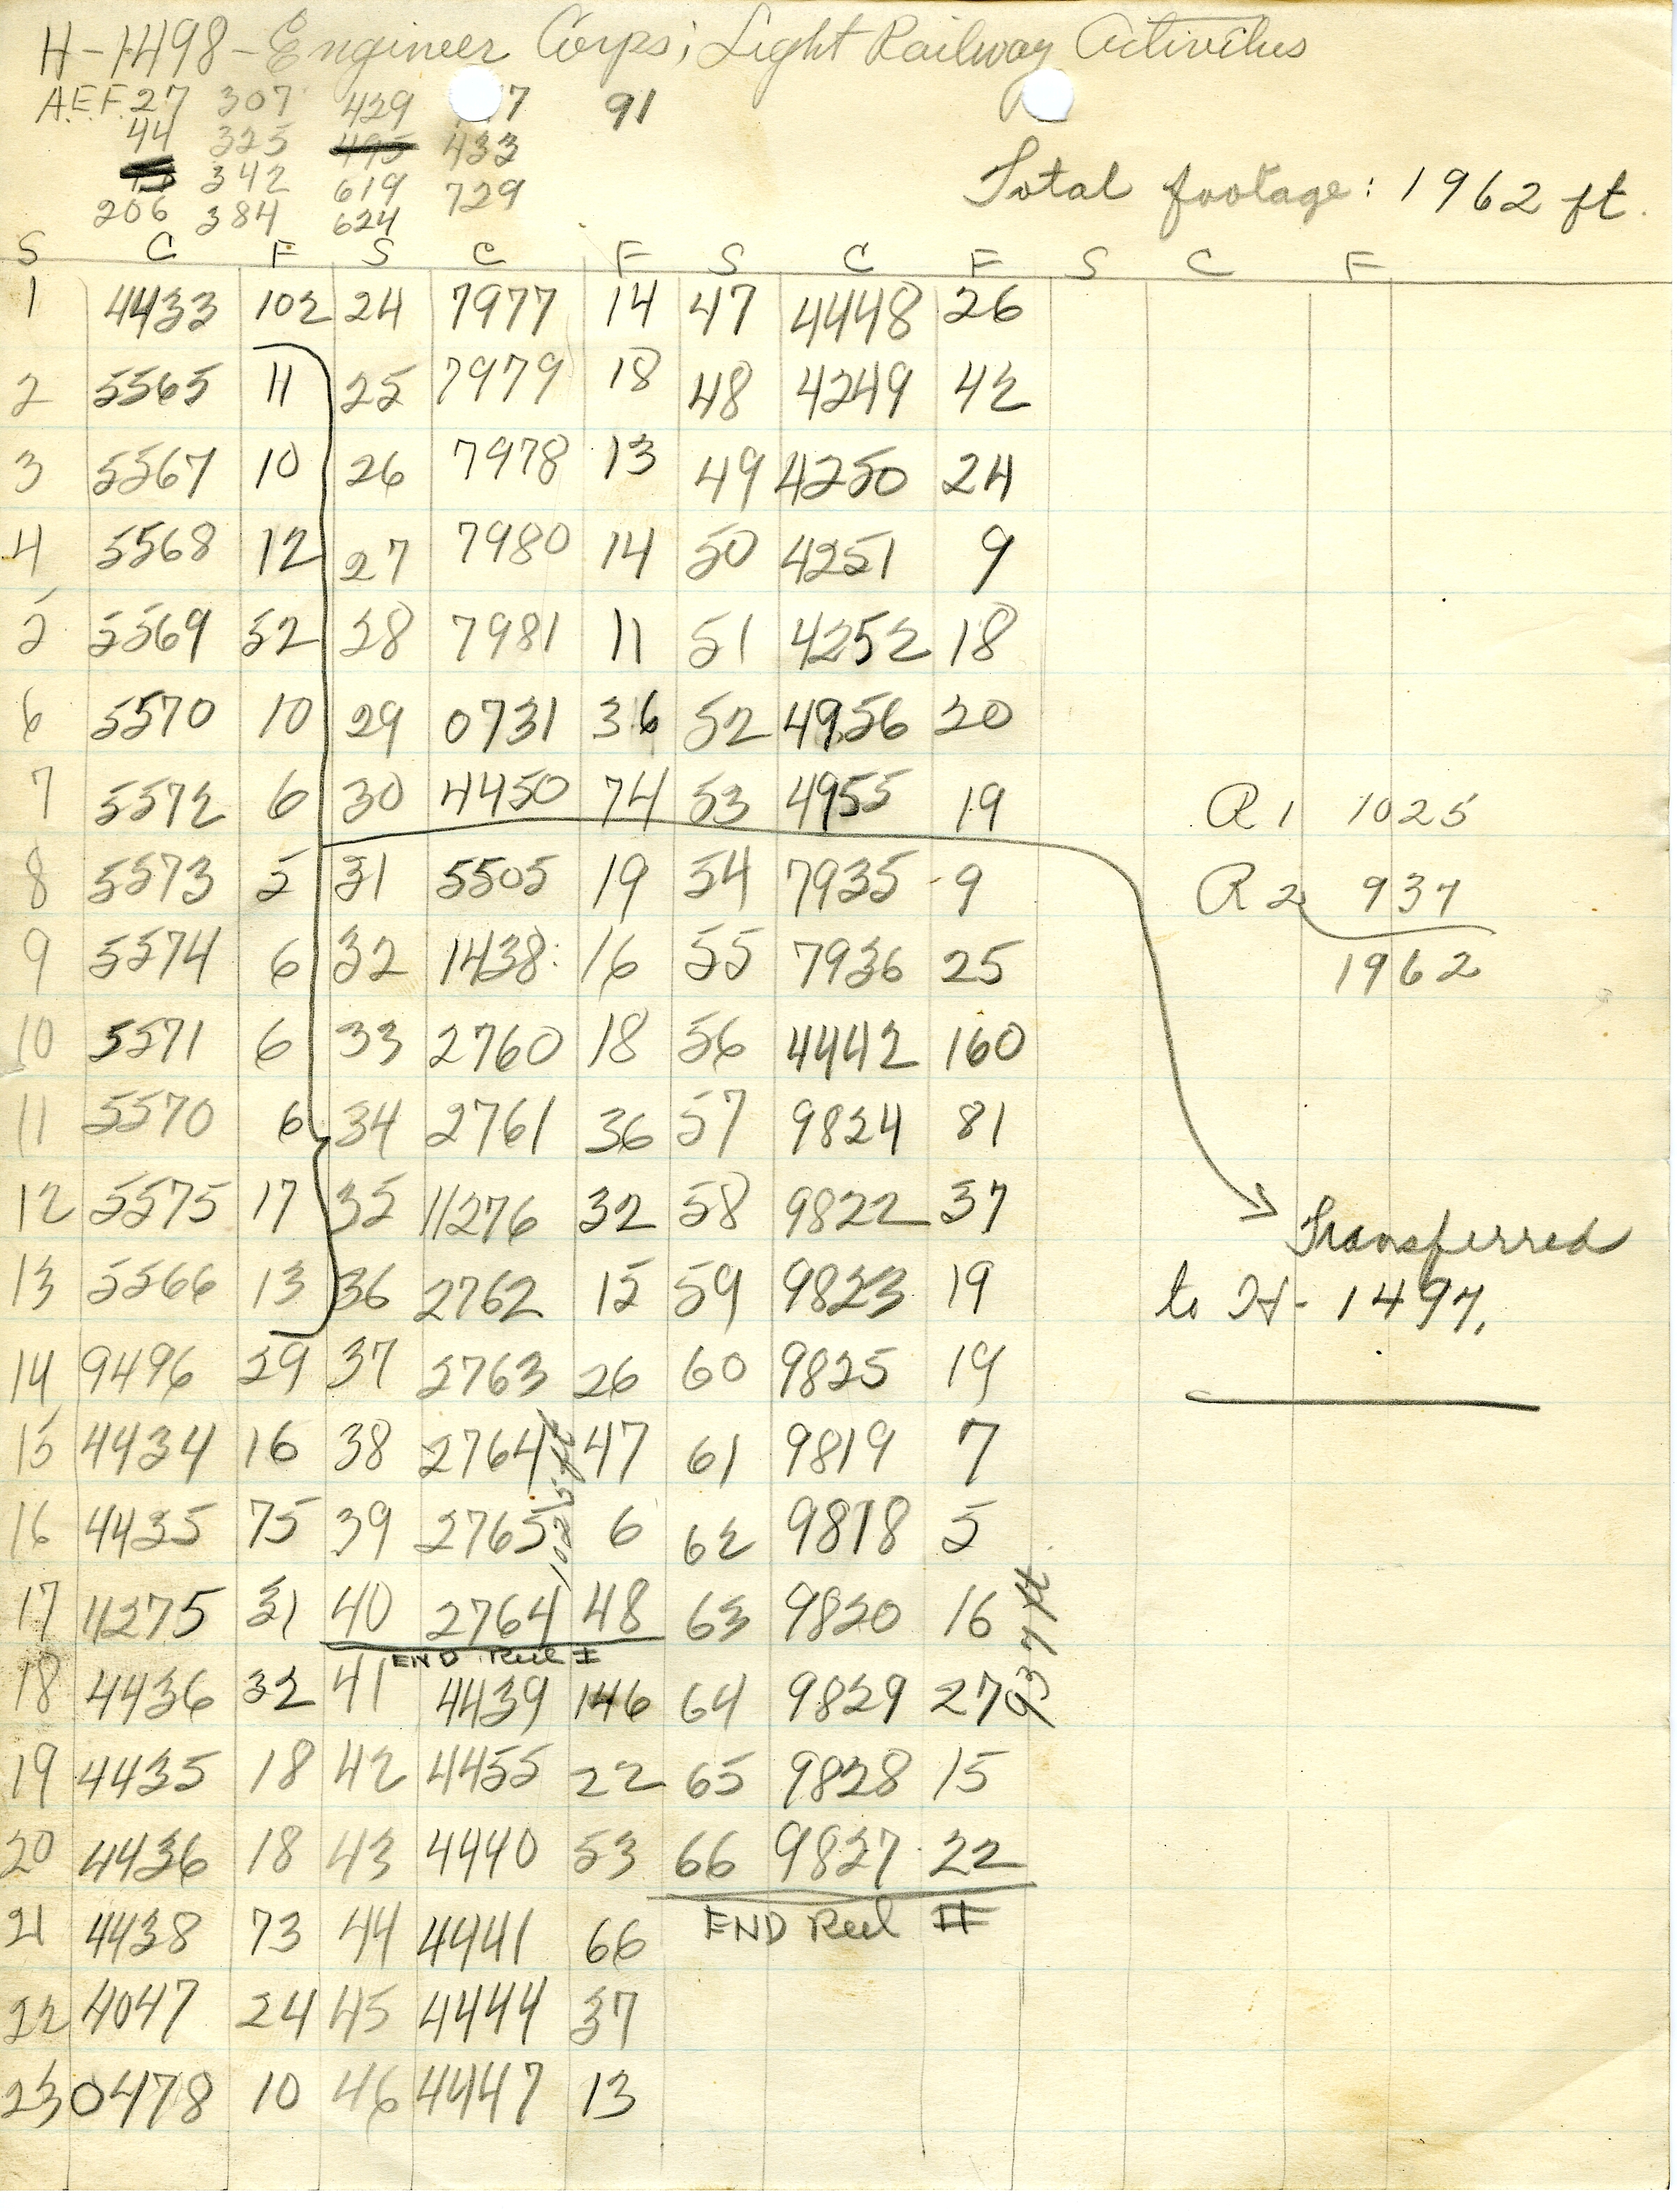 H-1498-Engineer Corps; Light Railway Activities
A.E.F. 27 307 429 7 91
44 325 495 433
342 619 729
206 384 624
Total footage: 1962 ft.
S C F S C F S C F S C F
1 4433 102 24 7977 14 47 4448 26
2 5565 11 25 7979 18 48 4249 42
3 5567 10 26 7978 13 49 4250 24
4 5568 12 27 7980 14 50 4251 9
5 5569 52 28 7981 11 51 4252 18
6 5570 10 29 0731 36 52 4956 20
7 5572 6 30 4450 74 53 4955 19 R1 1025
8 5573 5 31 5505 19 54 7935 9 R2 937
9 5574 6 32 1438 16 55 7936 25 1962
10 5571 6 33 2760 18 56 4442 160
11 5570 6 34 2761 36 57 9824 81
12 5575 17 35 11276 32 58 9822 37 Transferred
13 5566 13 36 2762 15 59 9823 19 to H-1497.
14 9496 29 37 2763 26 60 9825 19
15 4434 16 38 2764 47 61 9819 7
16 4435 75 39 2765 6 62 9818 5
1025 ft
17 4275 31 40 2764 48 63 9820 16
END Reel I
937 ft
18 4436 32 41 4439 146 64 9829 27
19 4435 18 42 4455 22 65 9828 15
20 4436 18 43 4440 53 66 9827 22
21 4438 73 44 4441 66 END Reel II
22 4047 24 45 4444 37
23 0478 10 46 4447 13